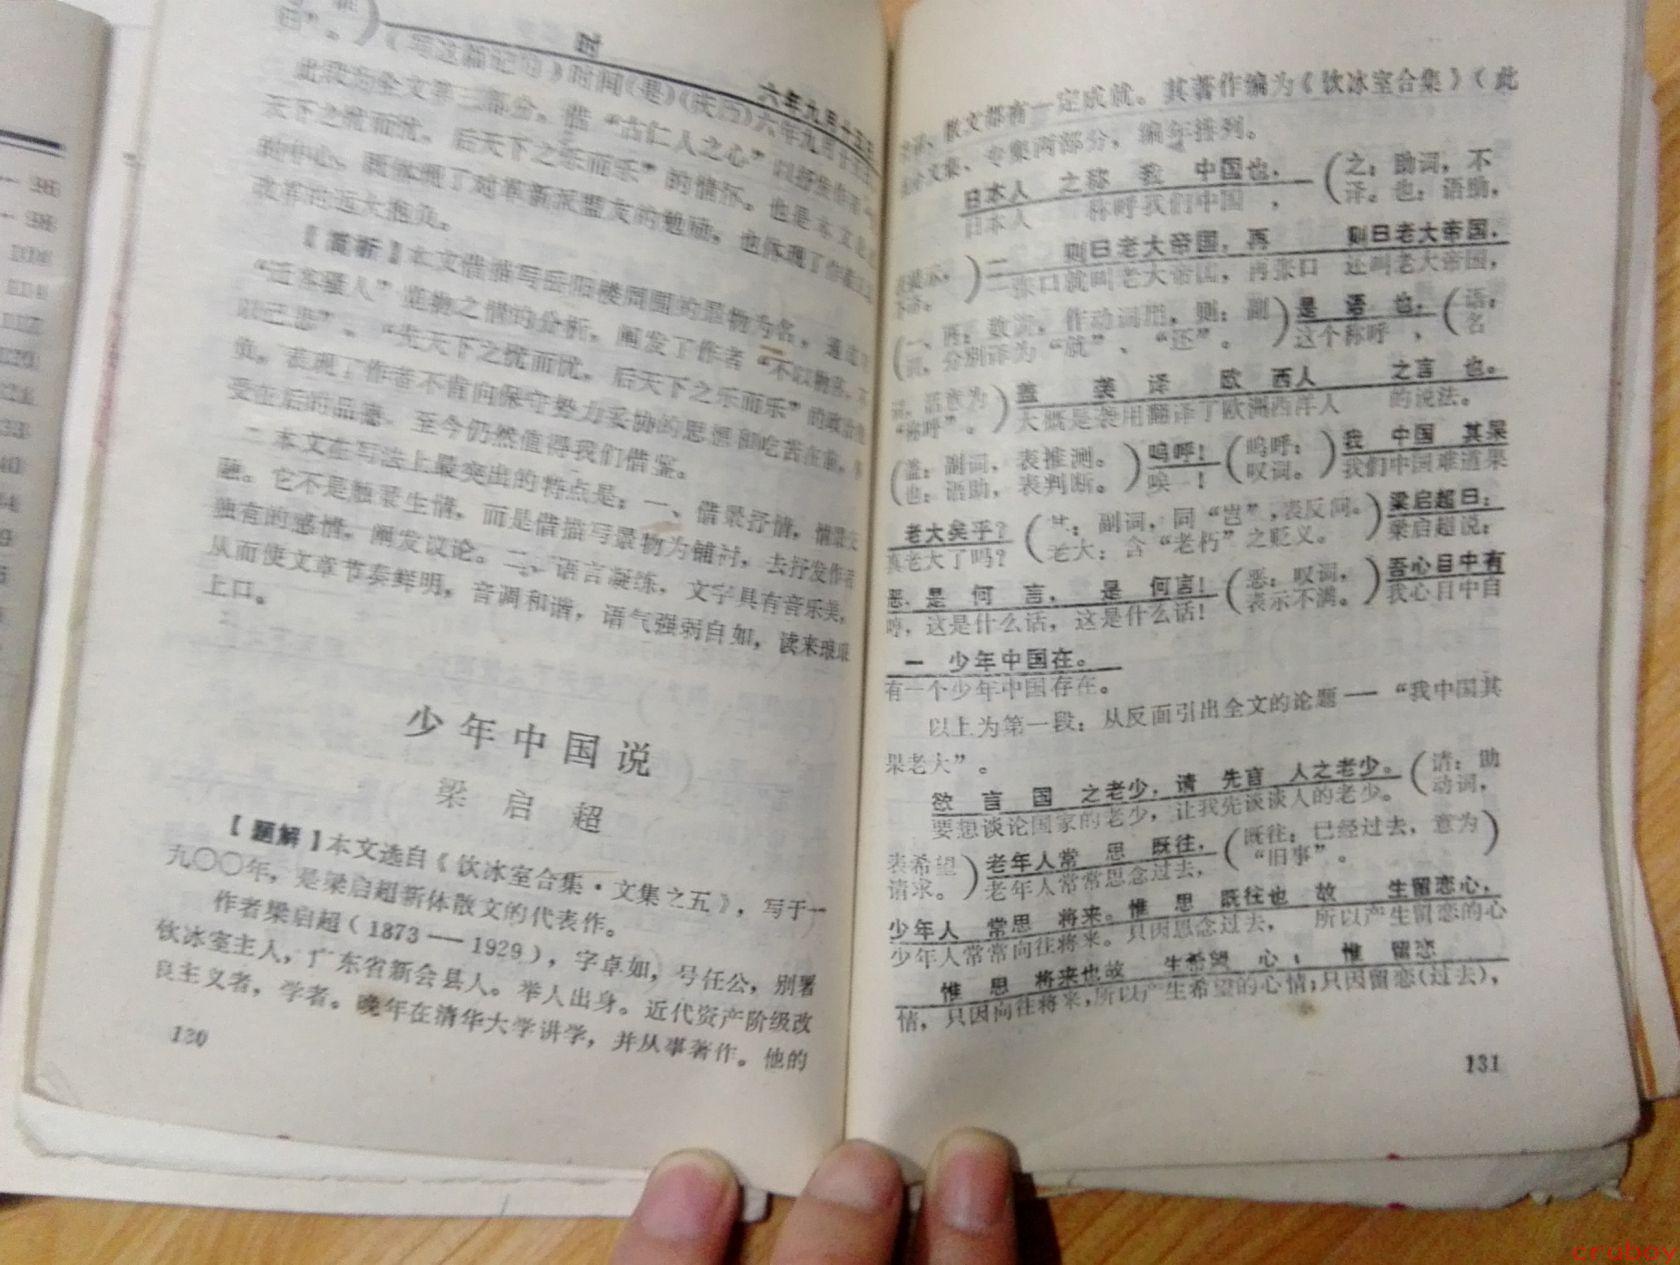 时
六年九月十五日
（写这篇记的）时间（是）（庆历）六年九月十五日
此段为全文第三部分。借“古仁人之心”以抒发作者“先
天下之忧而忧，后天下之乐而乐”的情怀。也是本文的
的中心。既体现了对革新派盟友的勉励，也体现了作者
改革的远大抱负。
【赏析】本文借描写岳阳楼周围的景物为名，通过对
“迁客骚人”览物之情的分析，阐发了作者“不以物喜，不
以己悲”、“先天下之忧而忧，后天下之乐而乐”的政治抱
负。表现了作者不肯向保守势力妥协的思想和吃苦在前，享
受在后的品德。至今仍然值得我们借鉴。
本文在写法上最突出的特点是：一、借景抒情，情景交
融。它不是触景生情，而是借描写景物为铺衬，去抒发作者
独有的感情，阐发议论。二、语言凝练，文字具有音乐美，
从而使文章节奏鲜明，音调和谐，语气强弱自如，读来琅琅
上口。
少年中国说
梁启超
【题解】本文选自《饮冰室合集·文集之五》，写于一
九〇〇年，是梁启超新体散文的代表作。
作者梁启超（1873—1929），字卓如，号任公，别署
饮冰室主人，广东省新会县人。举人出身。近代资产阶级改
良主义者，学者。晚年在清华大学讲学，并从事著作。他的
130
96
98
104
散文都有一定成就。其著作编为《饮冰室合集》（此
分文集、专集两部分，编年排列。
日本人 之称 我 中国也，（之：助词，不
日本人 称呼我们中国 ， 译。也：语助，
一 则曰老大帝国，再 则曰老大帝国，
一张口就叫老大帝国，再张口 还叫老大帝国，
（一、再：数词，作动词用，则：副）是 语 也，（语：
词，分别译为“就”、“还”。 这个称呼 ， 名
词，活意为）盖 袭 译 欧 西人 之言 也。
“称呼”。 大概是袭用翻译了欧洲西洋人 的说法。
（盖：副词，表推测。）呜呼！（呜呼：）我 中国 其果
也：语助，表判断。 唉 ！ 叹词。 我们中国难道果
老大矣乎？（其：副词，同“岂”，表反问。）梁启超曰：
真老大了吗？ 老大：含“老朽”之贬义。 梁启超说：
恶，是 何 言， 是 何言！（恶：叹词，）吾心目中有
哼，这是什么话，这是什么话！ 表示不满。 我心目中自
一 少年中国在。
有一个少年中国存在。
以上为第一段：从反面引出全文的论题——“我中国其
果老大”。
欲 言 国 之老少，请 先言 人之老少。（请：助
要想谈论国家的老少，让我先谈谈人的老少。 动词，
表希望）老年人常 思 既往，（既往：已经过去，意为）
请求。 老年人常常思念过去， “旧事”。
少年人 常思 将来。惟 思 既往也 故 生留恋心，
少年人常常向往将来。只因思念过去， 所以产生留恋的心
惟 思 将来也故 生希望 心； 惟 留恋
情，只因向往将来，所以产生希望的心情；只因留恋（过去），
131
crubov